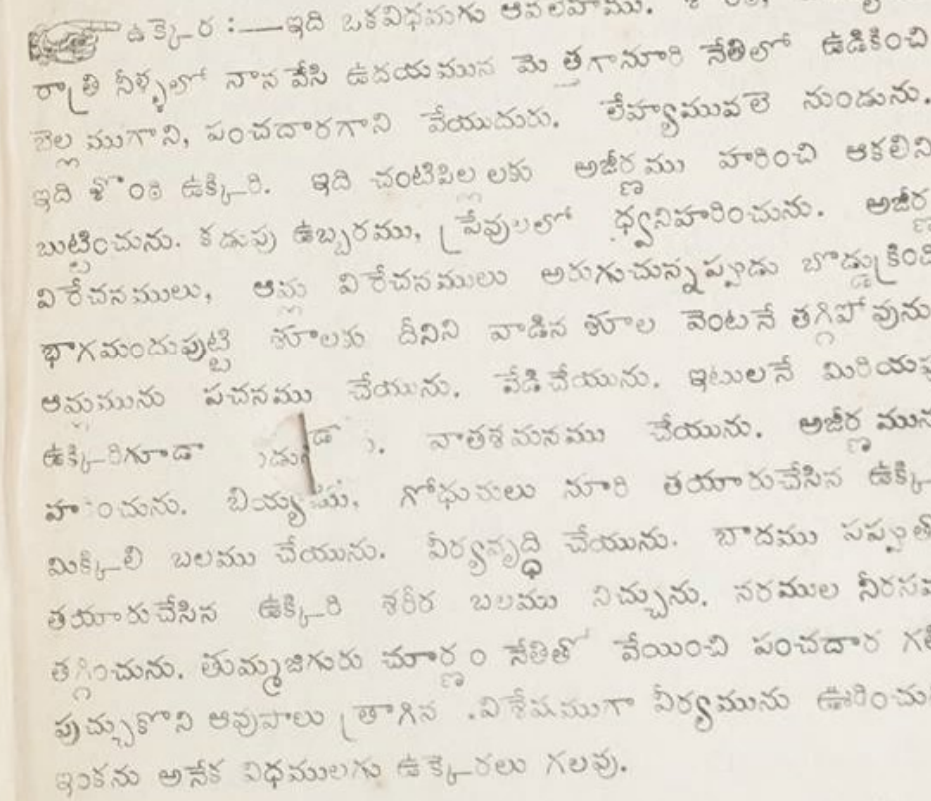 ఉక్కెర :—ఇది ఒకవిధమగు ఆవలేహము.
రాత్రి నీళ్ళలో నానవేసి ఉదయమున మెత్తగానూరి నేతిలో ఉడికించి
బెల్లముగాని, పంచదారగాని వేయుదురు. లేహ్యమువలె నుండును.
ఇది శొంఠి ఉక్కిరి. ఇది చంటిపిల్లలకు అజీర్ణము హరించి ఆకలిని
బుట్టించును. కడుపు ఉబ్బరము, ప్రేవులలో ధ్వనిహరించును. అజీర్ణ
విరేచనములు, ఆమ్ల విరేచనములు అరుగుచున్నప్పుడు బొడ్డుక్రింది
భాగమందుపుట్టి శూలకు దీనిని వాడిన శూల వెంటనే తగ్గిపోవును
ఆమమును పచనము చేయును. వేడిచేయును. ఇటులనే మిరియపు
ఉక్కిరిగూడా వాతశమనము చేయును. అజీర్ణమును
హరించును. బియ్యము, గోధుమలు నూరి తయారుచేసిన ఉక్కి
మిక్కిలి బలము చేయును. వీర్యవృద్ధి చేయును. బాదము పప్పుతో
తయారుచేసిన ఉక్కిరి శరీర బలము నిచ్చును. నరముల నీరసమ
తగ్గించును. తుమ్మజిగురు చూర్ణం నేతితో వేయించి పంచదార గలి
పుచ్చుకొని ఆవుపాలు త్రాగిన విశేషముగా వీర్యమును ఊరించు
ఇంకను అనేక విధములగు ఉక్కెరలు గలవు.